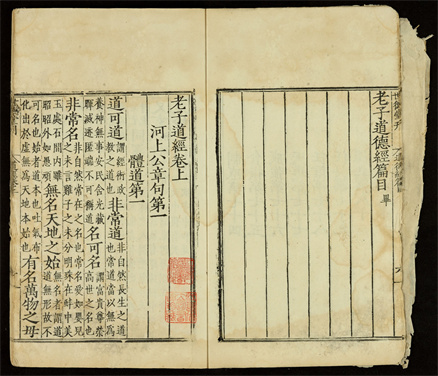 老子道德經篇目 畢
老子道經卷上
河上公章句第一
體道第一
道可道謂經術政教之道也非常道非自然長生之道也常道當以無為
養神無事安民含光藏暉滅迹匿端不可稱道名可名謂富貴尊榮高世之名也
非常名非自然常在之名也常名愛如嬰兒之未言雞子之未分明珠在蚌中美
玉處石間內雖昭昭外如愚頑無名天地之始無名者謂道道無形故不
可名也始者道本也吐氣布化出於虛無為天地本始也有名萬物之母